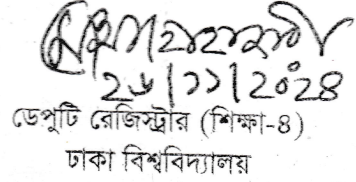 ২৬/১১/২০২৪
ডেপুটি রেজিস্ট্রার (শিক্ষা-৪)
ঢাকা বিশ্ববিদ্যালয়